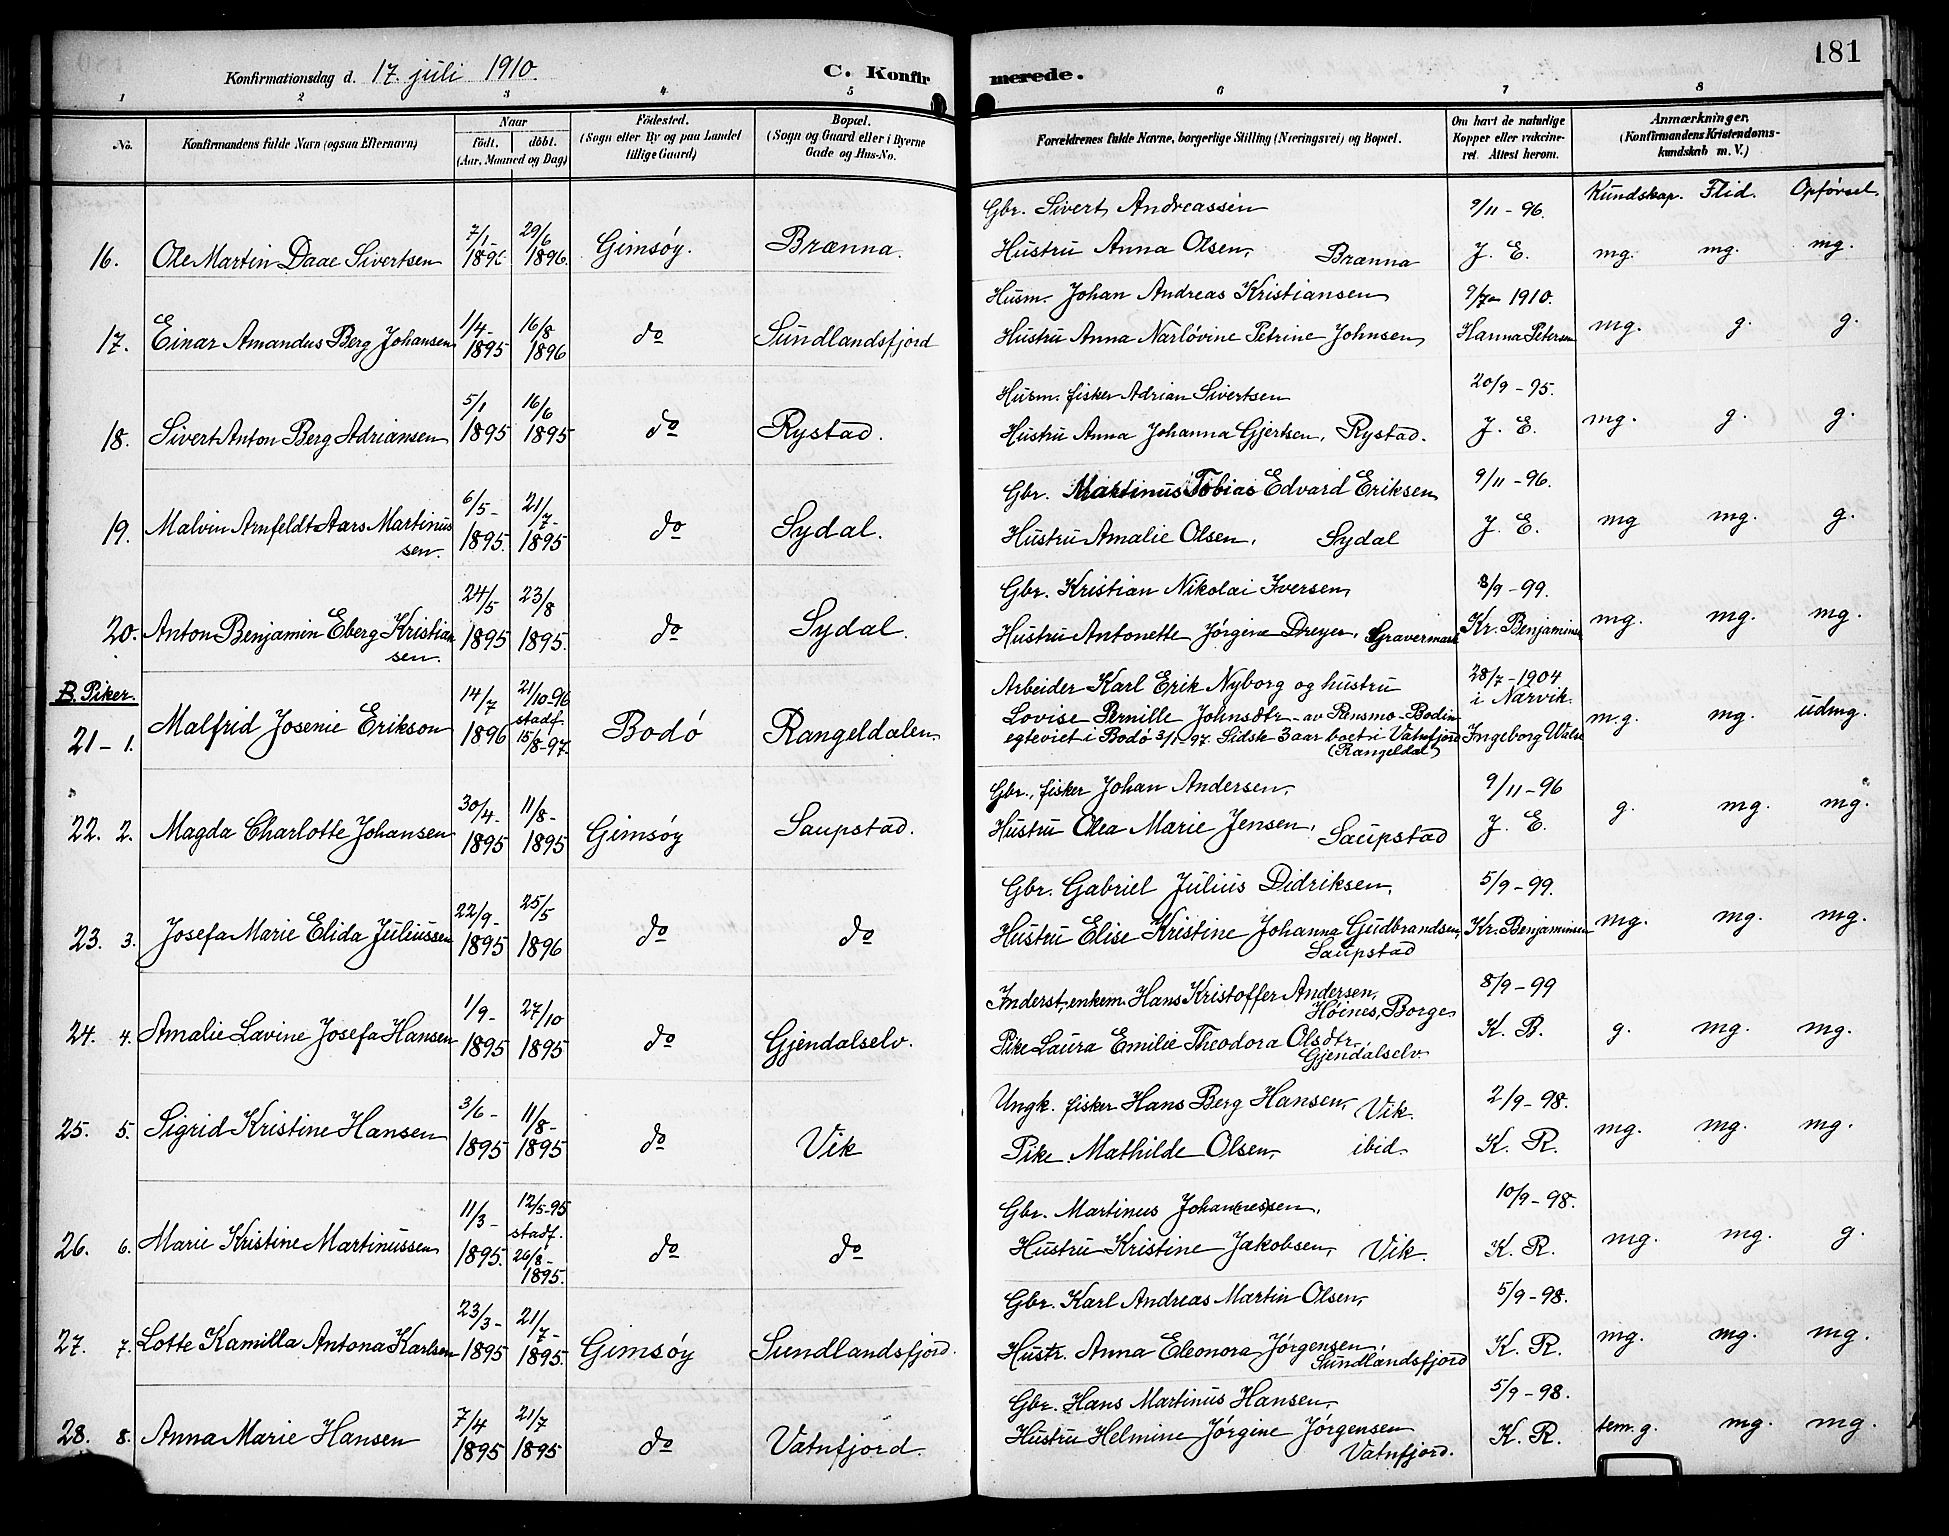 Konfirmationsdag d. 17. juli 1910.
C. Konfirmerede.
181
1 2 3 4 5 6 7 8
No.
Konfirmandens fulde Navn (ogsaa Efternavn)
Naar
födt. döbt.
(Aar, Maaned og Dag)
Födested.
(Sogn eller By og paa Landet
tillige Gaard)
Bopæl.
(Sogn og Gaard eller i Byerne
Gade og Hus-No.
Forældrenes fulde Navne, borgerlige Stilling (Næringsvei) og Bopæl.
Om havt de naturlige
Kopper eller vakcine-
ret. Attest herom.
Anmærkninger.
(Konfirmandens Kristendoms-
kundskab m. V.)
Kundskap. Flid. Opførsel.
16. Ole Martin Daae Sivertsen 7/1 1896 29/6 1896. Gimsøy. Brænna.
Gbr. Sivert Andreassen 9/11-96.
Hustru Anna Olsen, Brænna J. E. mg. mg. mg.
17. Einar Amandus Berg Johansen 1/4- 1895 16/8 1896 do Sundlandsfjord
Husm. Johan Andreas Kristiansen 9/7- 1910.
Hustru Anna Narløvine Petrine Johnsen, Hanna Petersen mg. g. g.
18. Sivert Anton Berg Adriansen 5/1 1895 16/6 1895 do Rystad.
Husm. fisker Adrian Sivertsen 20/9-95.
Hustru Anna Johanna Gjertsen, Rystad. J. E. mg. g. g.
19. Malvin Arnfeldt Aars Martinus
sen. 6/5- 1895. 21/7- 1895 do Sydal.
Gbr. Martinus Tobias Edvard Eriksen 9/11-96.
Hustru Amalie Olsen, Sydal J. E. mg mg. g.
20. Anton Benjamin Eberg Kristian
sen. 24/5 1895 23/8 1895. do Sydal.
Gbr. Kristian Nikolai Iversen, 8/9-99.
Hustru Antonette Jørgine Dreyer, Gravermark Kr. Benjaminsen mg. mg. mg.
B. Piker.
21-1. Malfrid Josenie Erikson 14/7 1896 21/10-96 stadf. 15/8-97. Bodø Rangeldalen
Arbeider Karl Erik Nyborg og hustru 28/7-1904
Lovise Pernille Johnsdtr. av Rensmo-Bodin i Narvik.
egteviet i Bodø 3/1-97. Sidste 3 aar boet i Vatnfjord Ingeborg m.g. mg. udmg.
(Rangeldal)
22. 2. Magda Charlotte Johansen 30/4- 1895 11/8- 1895 Gimsøy Saupstad.
Gbr., fisker Johan Andersen, 9/11-96
Hustru Olea Marie Jensen, Saupstad J. E. g. mg. mg.
23. 3. Josefa Marie Elida Juliussen 22/9- 1895 25/5 1896 do do
Gbr. Gabriel Julius Didriksen, 5/9-99.
Hustru Elise Kristine Johanna Gudbrandsen, Kr. Benjaminsen mg. mg. mg.
Saupstad
24. 4. Amalie Lavine Josefa Hansen 1/9- 1895 27/10 1895 do Gjendalselv.
Inderst, enkem. Hans Kristoffer Andersen, 8/9-99
Høines, Borge
Pike Laura Emilie Theodora Olsdtr. K. B. g. mg. mg.
Gjendalselv
25. 5. Sigrid Kristine Hansen 3/6- 1895 11/8- 1895 do Vik
Ungk. fisker Hans Berg Hansen, Vik. 2/9-98.
Pike Mathilde Olsen, ibid. K. R. mg. mg. mg.
26. 6. Marie Kristine Martinussen 11/3- 1895. 12/5-95 stadf. 26/8- 1895. do do
Gbr. Martinus Johannessen, 10/9-98.
Hustru Kristine Jakobsen, Vik. K. R. mg. mg. g.
27. 7. Lotte Kamilla Antona Karlsen 23/3- 1895 21/7- 1895. Gimsøy Sundlandsfjord.
Gbr. Karl Andreas Martin Olsen, 5/9-98.
Hustr. Anna Eleonora Jørgensen, K. R. mg. mg. mg.
Sundlandsfjord
28. 8. Anna Marie Hansen 7/4 1895 21/7 1895 do Vatnfjord.
Gbr. Hans Martinus Hansen, 5/9-98.
Hustru Helmine Jørgine Jørgensen K. R. tem. g. mg. mg.
Vatnfjord.